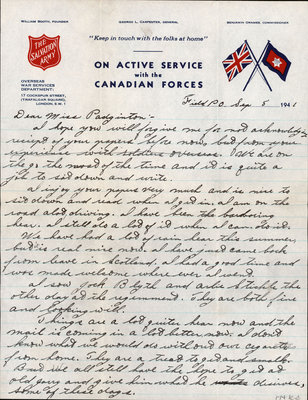 WILLIAM BOOTH, FOUNDER
GEORGE L. CARPENTER, GENERAL
BENJAMIN ORAMES, COMMISSIONER
"Keep in touch with the folks at home"
THE SALVATION ARMY
ON ACTIVE SERVICE
with the
CANADIAN FORCES
OVERSEAS
WAR SERVICES
DEPARTMENT:
17 COCKSPUR STREET,
(TRAFALGAR SQUARE),
LONDON, S.W.1
Field P.O. Sep 5 194
Dear Miss
I hope you will forgive me for not
receipt of your papers before now, but from your
experience with soldiers overseas. We are on
the go the most of the time and it is quite a
job to sit down and write.
I enjoy your papers very much and is nice to
sit down and read when I get in. I am on the
road a lot driving. I have been the
hear. I still do a lot of it when I can do it.
We have had a lot of rain hear this summer
but its real nice now. I have just came back
from leave in Scotland. I had a good time and
was made welcome where ever I went.
I saw Jack Blyth and
other day at the regemment. They are both fine
and looking well.
Things are a lot quiter hear now and the
mail is coming in a lot better now. I dont
know what we would do with out our cigaretts
from home. They are a treat to get and smoke.
But we all still have the hope to get at
old Jerry and give him what he desirves,
some of these days.